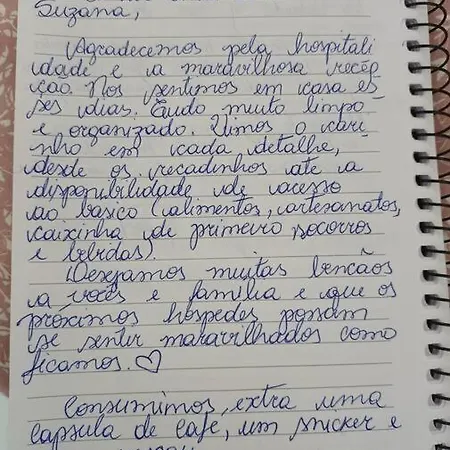 Suzana,
Agradecemos pela hospitali
dade e a maravilhosa recep
ção. Nos sentimos em casa es
ses dias. Tudo muito limpo
e organizado. Vimos o cari
nho em cada detalhe,
desde os recadinhos até a
disponibilidade de acesso
ao básico (alimentos, artesanatos,
caixinha de primeiro socorros
e bebidas).
Desejamos muitas bençãos
a vocês e família e que os
próximos hospedes possam
se sentir maravilhados como
ficamos. ♡
Consumimos, extra uma
capsula de café, um snicker e